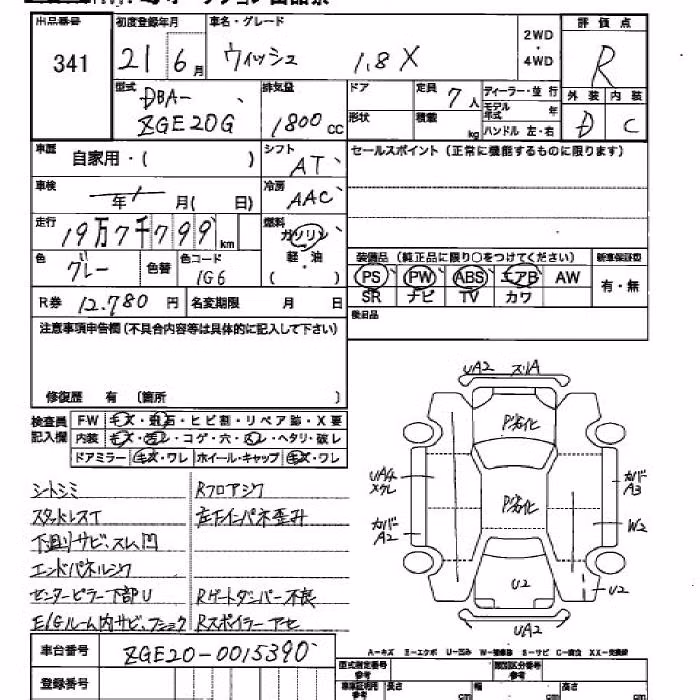 出品番号 初度登録年月 車名・グレード 2WD・4WD 評価点
341 21 6月 ウィッシュ 1.8X R
型式 排気量 ドア 定員 ディーラー・並行 外装 内装
DBA- 7人 モデル年式 年
ZGE20G 1800cc 形状 積載 kg ハンドル 左・右 D C
車歴 シフト セールスポイント(正常に機能するものに限ります)
自家用・( ) AT
車検 年 月( 日) 冷房 AAC
走行 19万7千799km 燃料 ガソリン
色 グレー 色替 色コード 1G6 軽・油 ( )
装備品(純正品に限り○をつけてください) 新車保証書
PS PW ABS エアB AW 有・無
SR ナビ TV カワ
R券 12,780円 名変期限 月 日 後日品
注意事項申告欄(不具合内容等は具体的に記入して下さい)
修復歴 有 〔箇所 〕
検査員記入欄 FW キズ・飛石・ヒビ割・リペア跡・X要
内装 キズ・汚レ・コゲ・穴・凹レ・ヘタリ・破レ
ドアミラー キズ・ワレ ホイール・キャップ キズ・ワレ
シートシミ Rフロアシワ
スタッドレスT 左下インパネ歪み
下廻りサビ、スレ凹
エンドパネルシワ
センターピラー下部U Rゲートダンパー不良
E/Gルーム内サビ、フショク Rスポイラーアセ
UA2 スリA
P劣化
UA4 Xクレ
カバーA3
P劣化
カバーA2
W2
U2
U2
UA2
A-キズ E-エクボ U-凹み W-補修跡 S-サビ C-腐食 XX-交換歴
車台番号 ZGE20-0015390
型式指定番号 類別区分番号
登録番号 車庫証明用参考 長さ cm 幅 cm 高さ cm